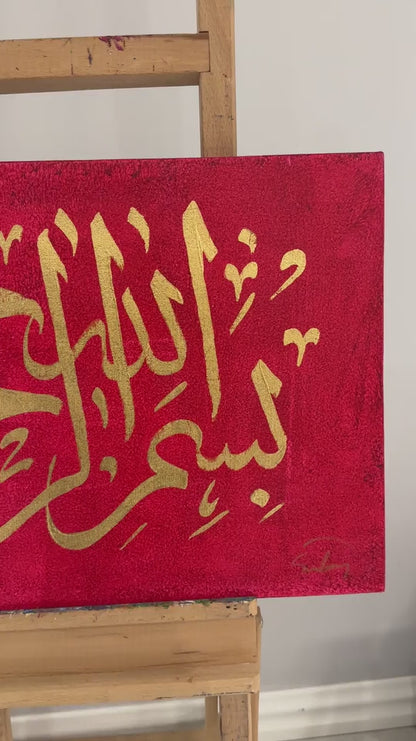 بِسْمِ اللهِ الرح